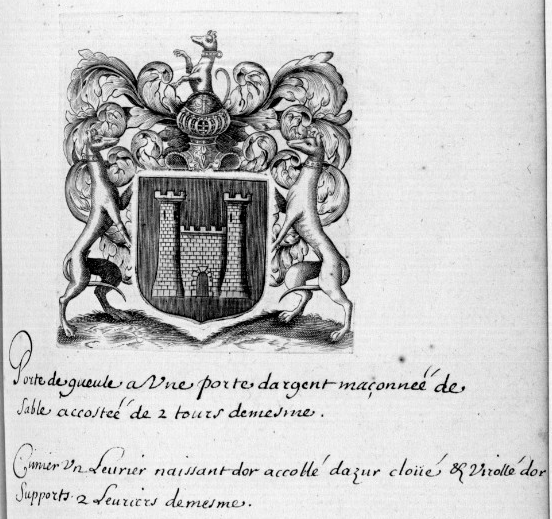 Porte de gueule a Vne porte dargent maçonneé de
sable accosteé de 2 tours demesme.
Cimier Vn Leurier naissant dor accollé dazur cloüé & Virollé dor
Supports. 2 Leuriers demesme.